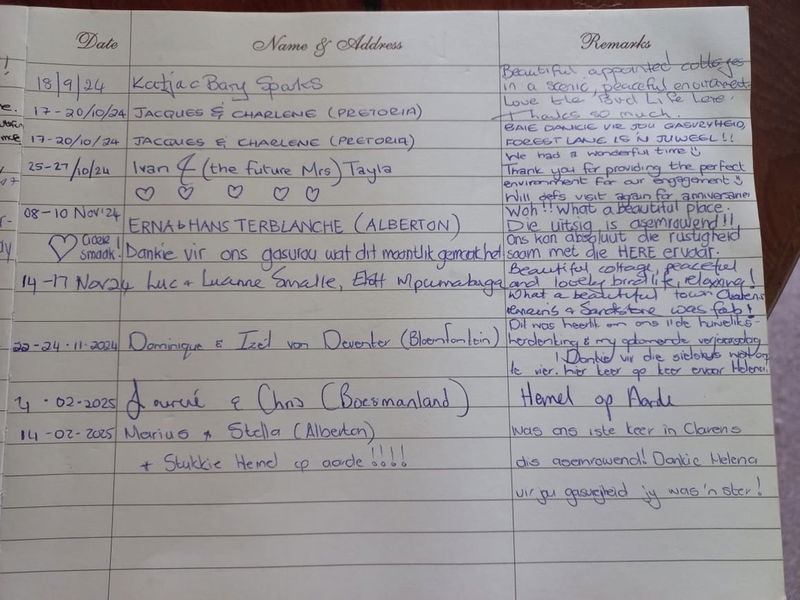 Date Name & Address Remarks
18/9/24 Katja Bary Sparks Beautiful appointed cottages
in a scenic, peaceful environment
Love the Bird Life here.
Thanks so much.
17-20/10/24 JACQUES & CHARLENE (PRETORIA)
17-20/10/24 JACQUES & CHARLENE (PRETORIA) BAIE DANKIE VIR JOU GASVRYHEID,
FOREST LANE IS N JUWEEL!!
We had a wonderful time
25-27/10/24 Ivan & (the future Mrs) Tayla Thank you for providing the perfect
environment for our engagement
Will defs visit again for anniversaries
08-10 Nov'24 Woh!! What a beautiful place.
ERNA & HANS TERBLANCHE (ALBERTON) Die uitsig is asemrowend!!,
Goeie smaak! Dankie vir ons gasvrou wat dit moontlik gemaak het Ons kon absoluut die rustigheid
saam met die HERE ervaar.
14-17 Nov 24 Luc + Luanne Smalle, Mpumalanga Beautiful cottage, peaceful
and lovely birdlife, relaxing!
What a beautiful town Clarens
remains & Sandstone was fab!
22-24-11-2024 Dominique & Izel van Deventer (Bloemfontein) Dit was heerlik om ons 11de huweliks-
herdenking & my verjaarsdag
! Dankie vir die
te vier. hier keer op keer ervaar Helena!
02-2025 & Chris (Boesmanland) Hemel op Aarde
14-02-2025 Marius & Stella (Alberton) Was ons 1ste keer in Clarens
+ Stukkie Hemel op aarde!!!! dis asemrowend! Dankie Helena
vir jou gasvryheid jy was 'n ster!